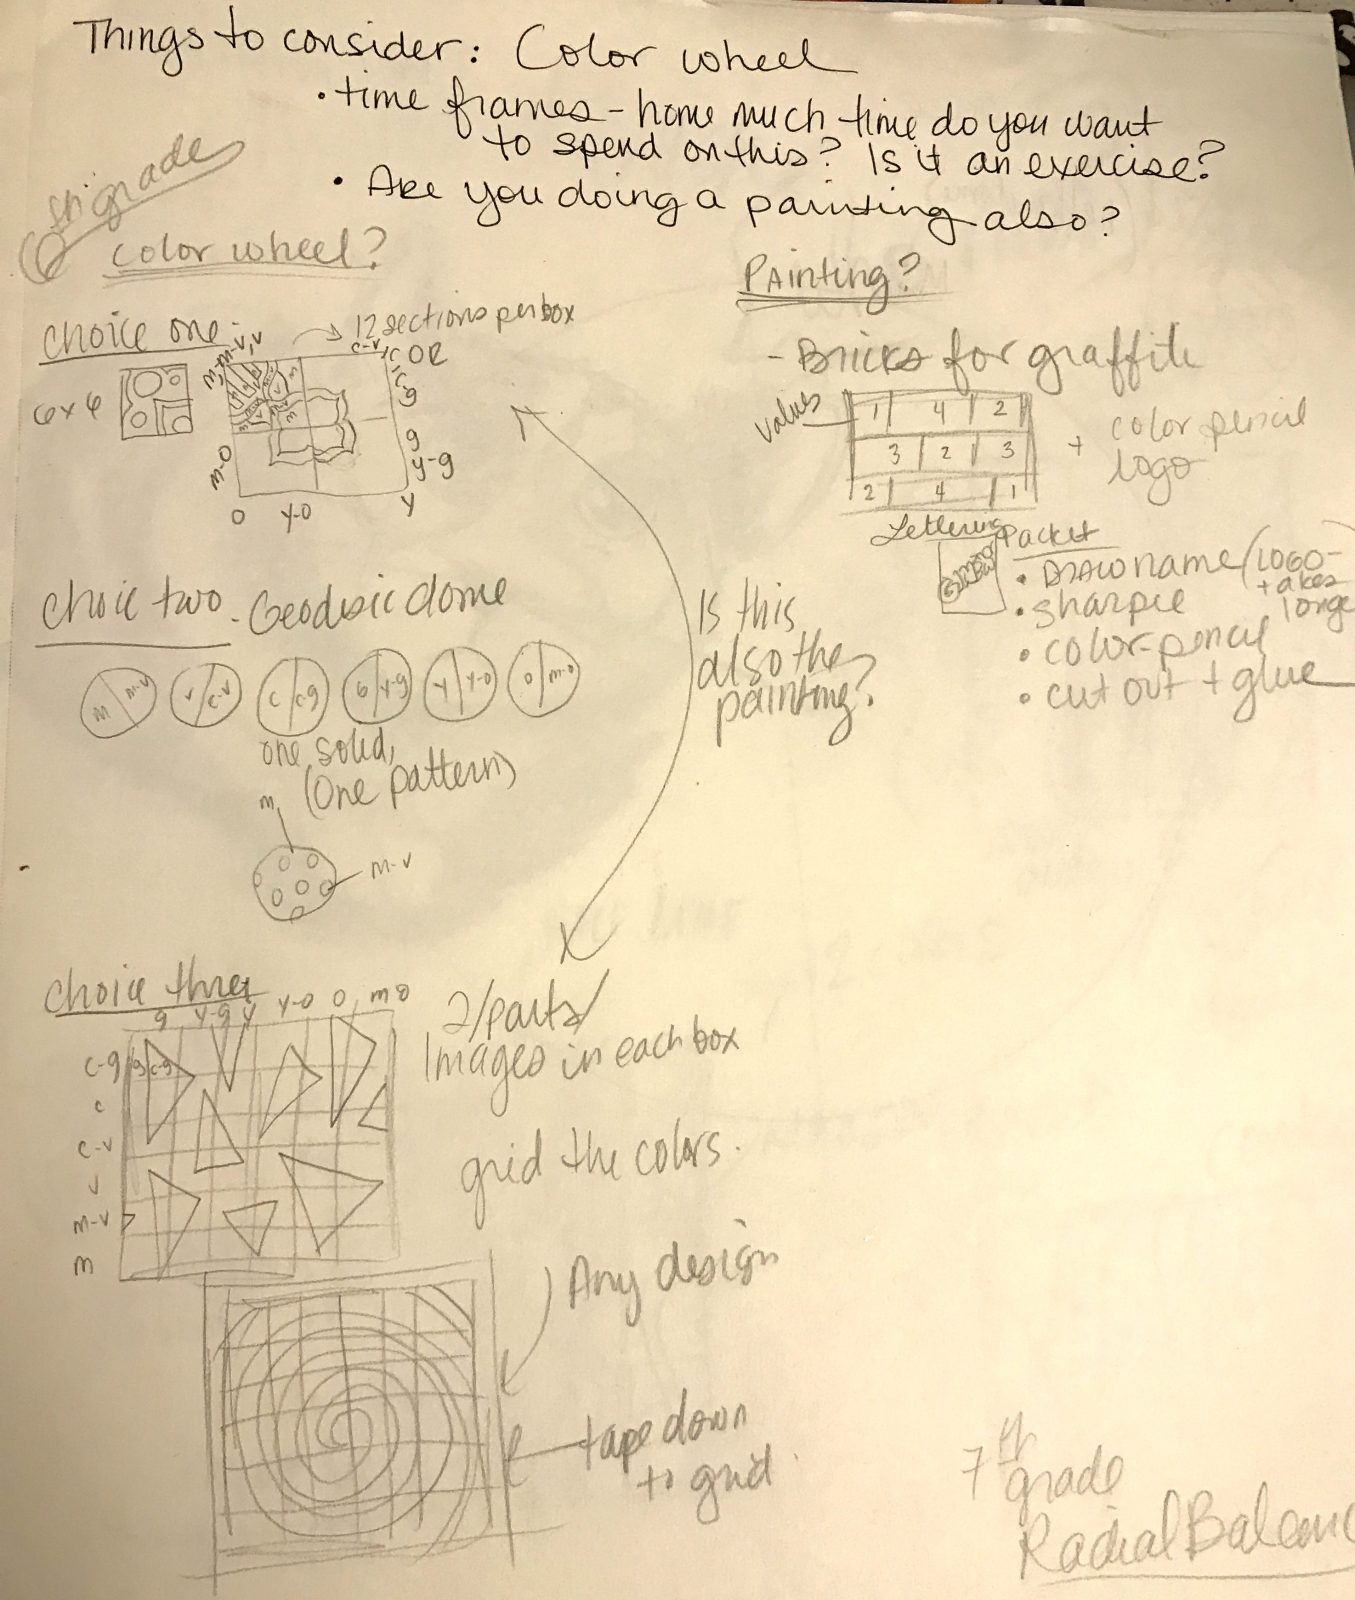 Things to consider: Color wheel
• time frames - home much time do you want
to spend on this? Is it an exercise?
• Are you doing a painting also?
6th grade
color wheel?
Painting?
choice one -
→ 12 sections per box
6x6
m m-v v
c-v c OR
c-g
g
y-g
m-o
o y-o y
- Bricks for graffiti
values
1 4 2
3 2 3
2 4 1
+ color pencil
logo
Lettering Packet
• Draw name (LOGO-
takes
longe
• sharpie
• color-pencil
• cut out + glue
Is this
also the
painting?
choice two - Geodesic dome
m m-v v c-v c c-g G y-g y y-o o m-o
one solid,
(One pattern)
m
m-v
choice three
g y-g y y-o o mo
c-g g c-g
c
c-v
v
m-v
m
2/parts/
Images in each box
grid the colors.
Any design
tape down
to grid
7th
grade
Radial Balanc